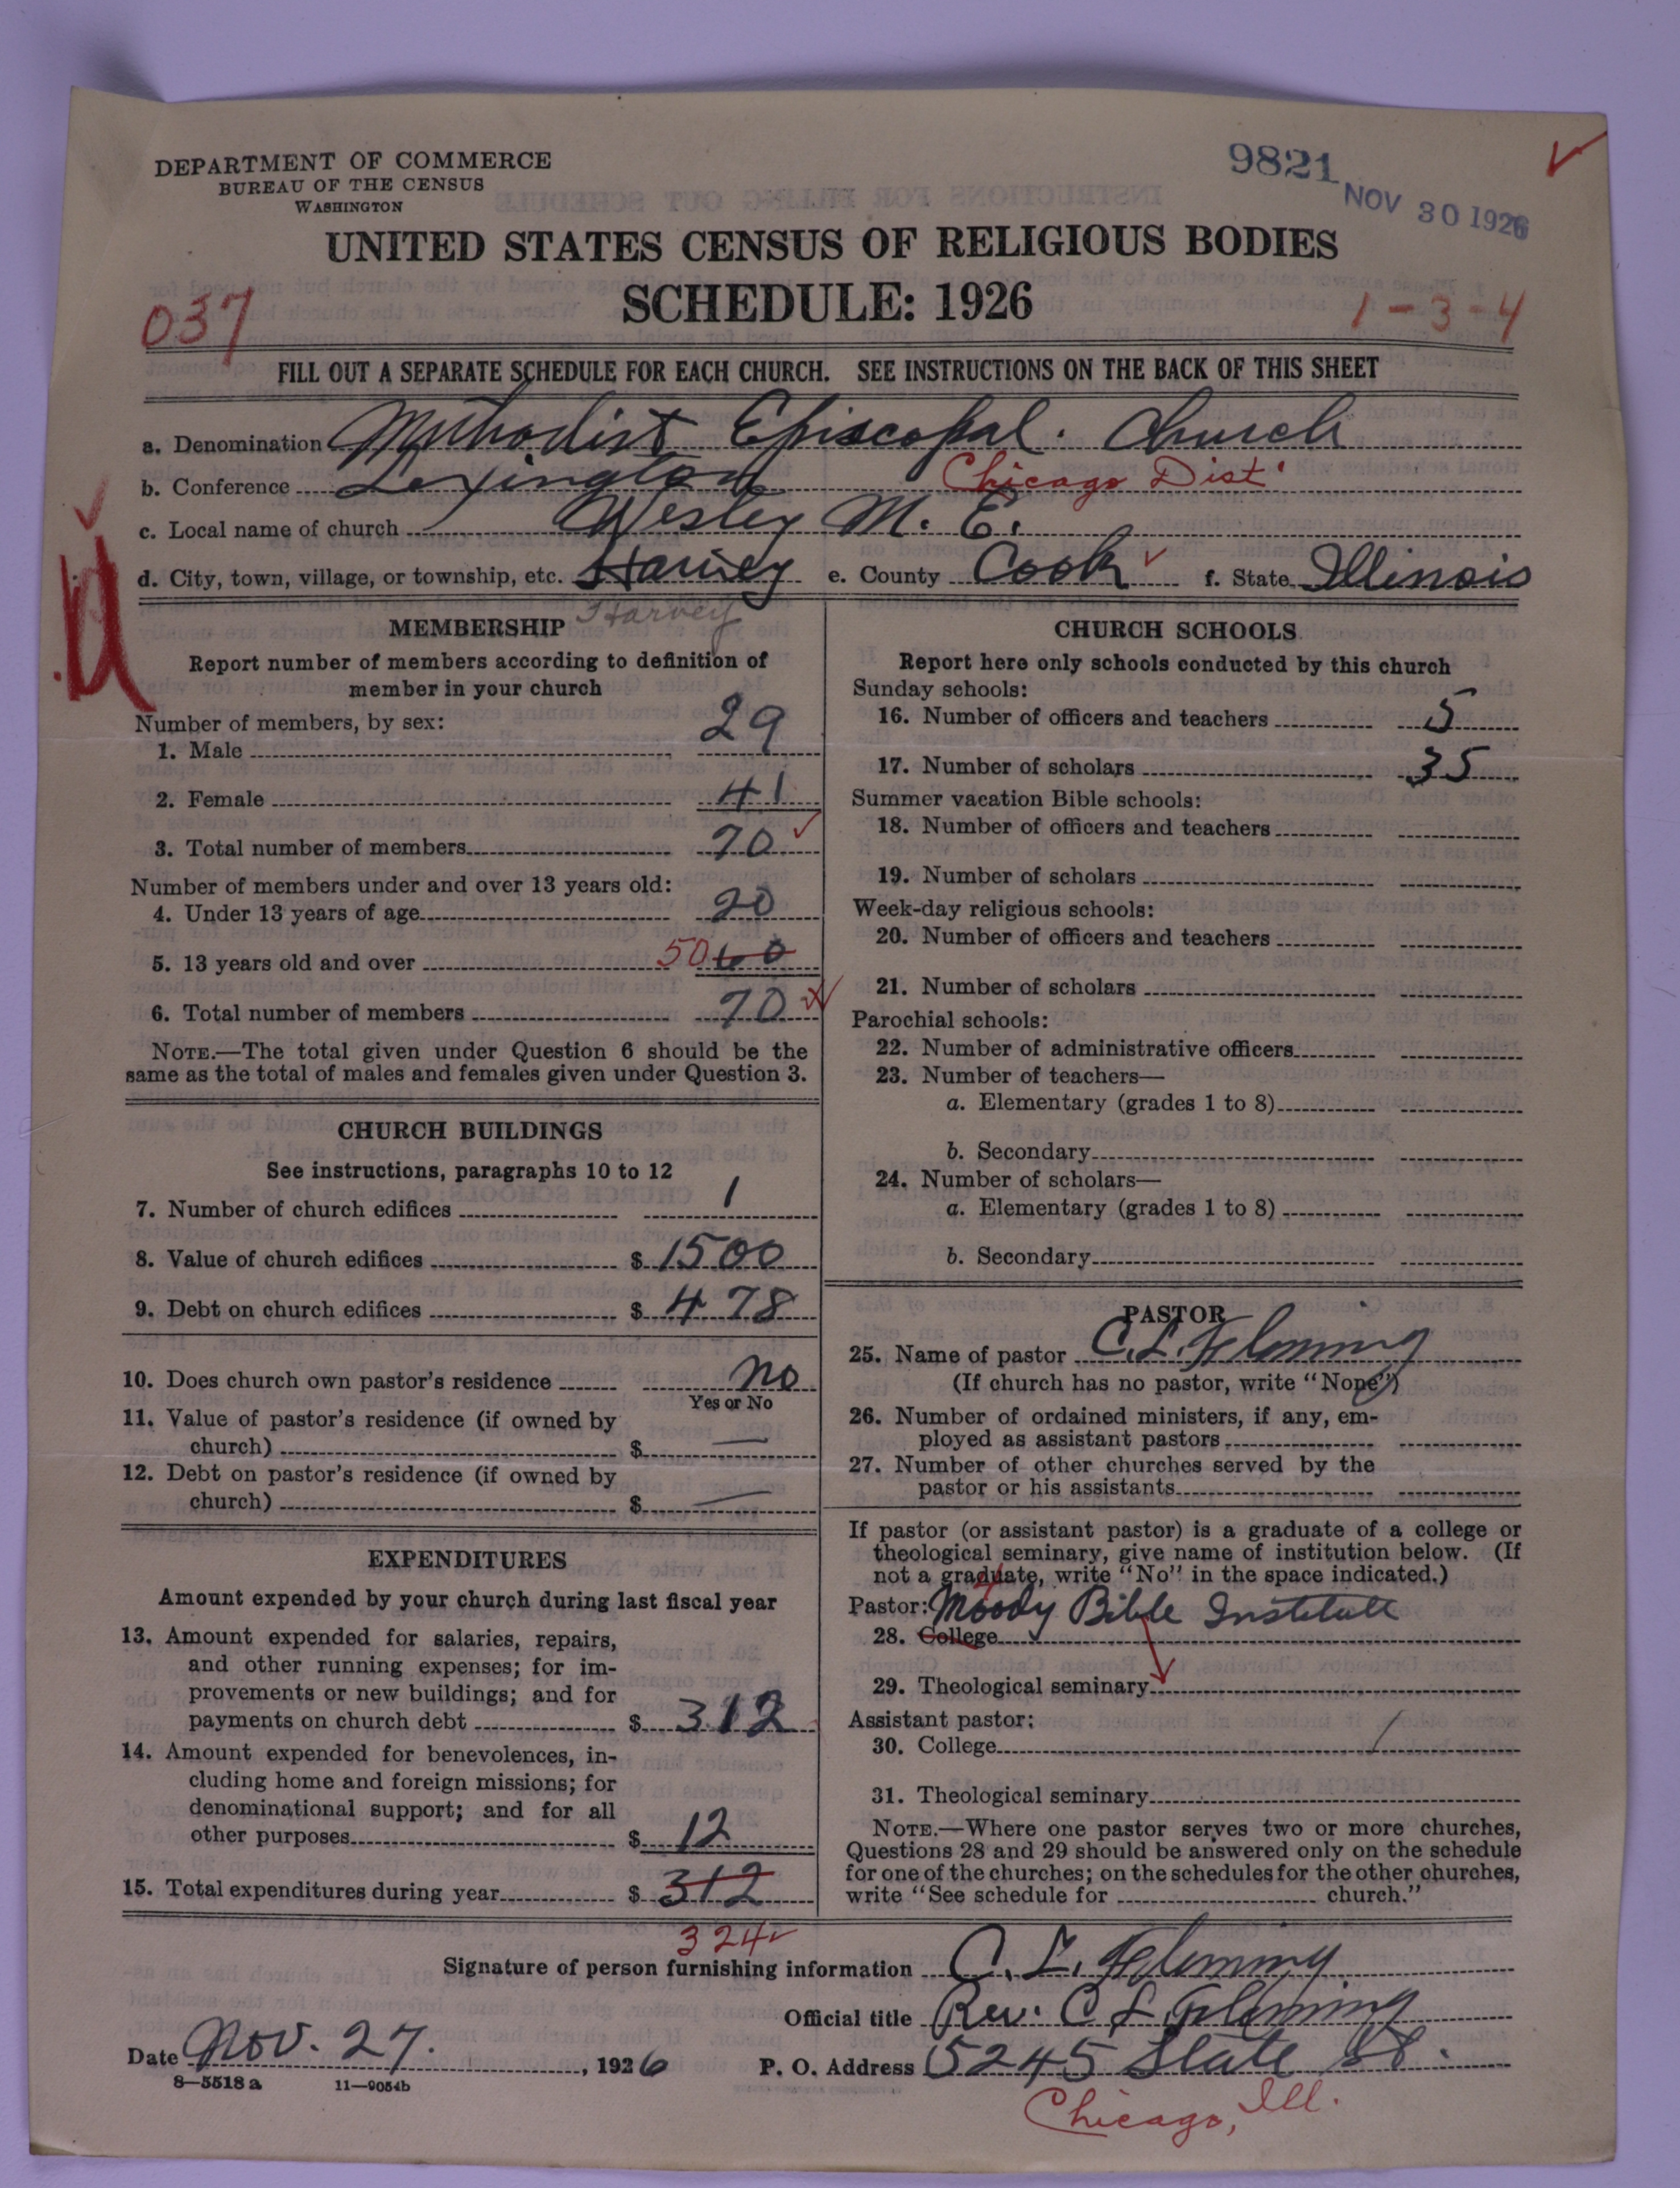 DEPARTMENT OF COMMERCE
BUREAU OF THE CENSUS
WASHINGTON
9821
NOV 30 1926
UNITED STATES CENSUS OF RELIGIOUS BODIES
SCHEDULE: 1926
037
1-3-4
FILL OUT A SEPARATE SCHEDULE FOR EACH CHURCH. SEE INSTRUCTIONS ON THE BACK OF THIS SHEET
a. Denomination Methodist Episcopal. Church
b. Conference Lexington Chicago Dist.
c. Local name of church Wesley M. E.
d. City, town, village, or township, etc. Harvey e. County Cook f. State Illinois
Harvey
MEMBERSHIP
Report number of members according to definition of
member in your church
Number of members, by sex:
1. Male 29
2. Female 41
3. Total number of members 70
Number of members under and over 13 years old:
4. Under 13 years of age 20
5. 13 years old and over 50 60
6. Total number of members 70
NOTE.—The total given under Question 6 should be the
same as the total of males and females given under Question 3.
CHURCH BUILDINGS
See instructions, paragraphs 10 to 12
7. Number of church edifices 1
8. Value of church edifices $ 1500
9. Debt on church edifices $ 478
10. Does church own pastor's residence no
Yes or No
11. Value of pastor's residence (if owned by
church) $ —
12. Debt on pastor's residence (if owned by
church) $ —
EXPENDITURES
Amount expended by your church during last fiscal year
13. Amount expended for salaries, repairs,
and other running expenses; for im-
provements or new buildings; and for
payments on church debt $ 312
14. Amount expended for benevolences, in-
cluding home and foreign missions; for
denominational support; and for all
other purposes $ 12
15. Total expenditures during year $ 312
324
CHURCH SCHOOLS
Report here only schools conducted by this church
Sunday schools:
16. Number of officers and teachers 5
17. Number of scholars 35
Summer vacation Bible schools:
18. Number of officers and teachers
19. Number of scholars
Week-day religious schools:
20. Number of officers and teachers
21. Number of scholars
Parochial schools:
22. Number of administrative officers
23. Number of teachers—
a. Elementary (grades 1 to 8)
b. Secondary
24. Number of scholars—
a. Elementary (grades 1 to 8)
b. Secondary
PASTOR
25. Name of pastor C. L. Fleming
(If church has no pastor, write "None")
26. Number of ordained ministers, if any, em-
ployed as assistant pastors
27. Number of other churches served by the
pastor or his assistants
If pastor (or assistant pastor) is a graduate of a college or
theological seminary, give name of institution below. (If
not a graduate, write "No" in the space indicated.)
Pastor: Moody Bible Institute
28. College
29. Theological seminary
Assistant pastor:
30. College
31. Theological seminary
NOTE.—Where one pastor serves two or more churches,
Questions 28 and 29 should be answered only on the schedule
for one of the churches; on the schedules for the other churches,
write "See schedule for church."
Signature of person furnishing information C. L. Fleming
Official title Rev. C L Fleming
Date Nov. 27. , 1926 P. O. Address 5245 State St.
8—5518 a 11—9054b
Chicago, Ill.